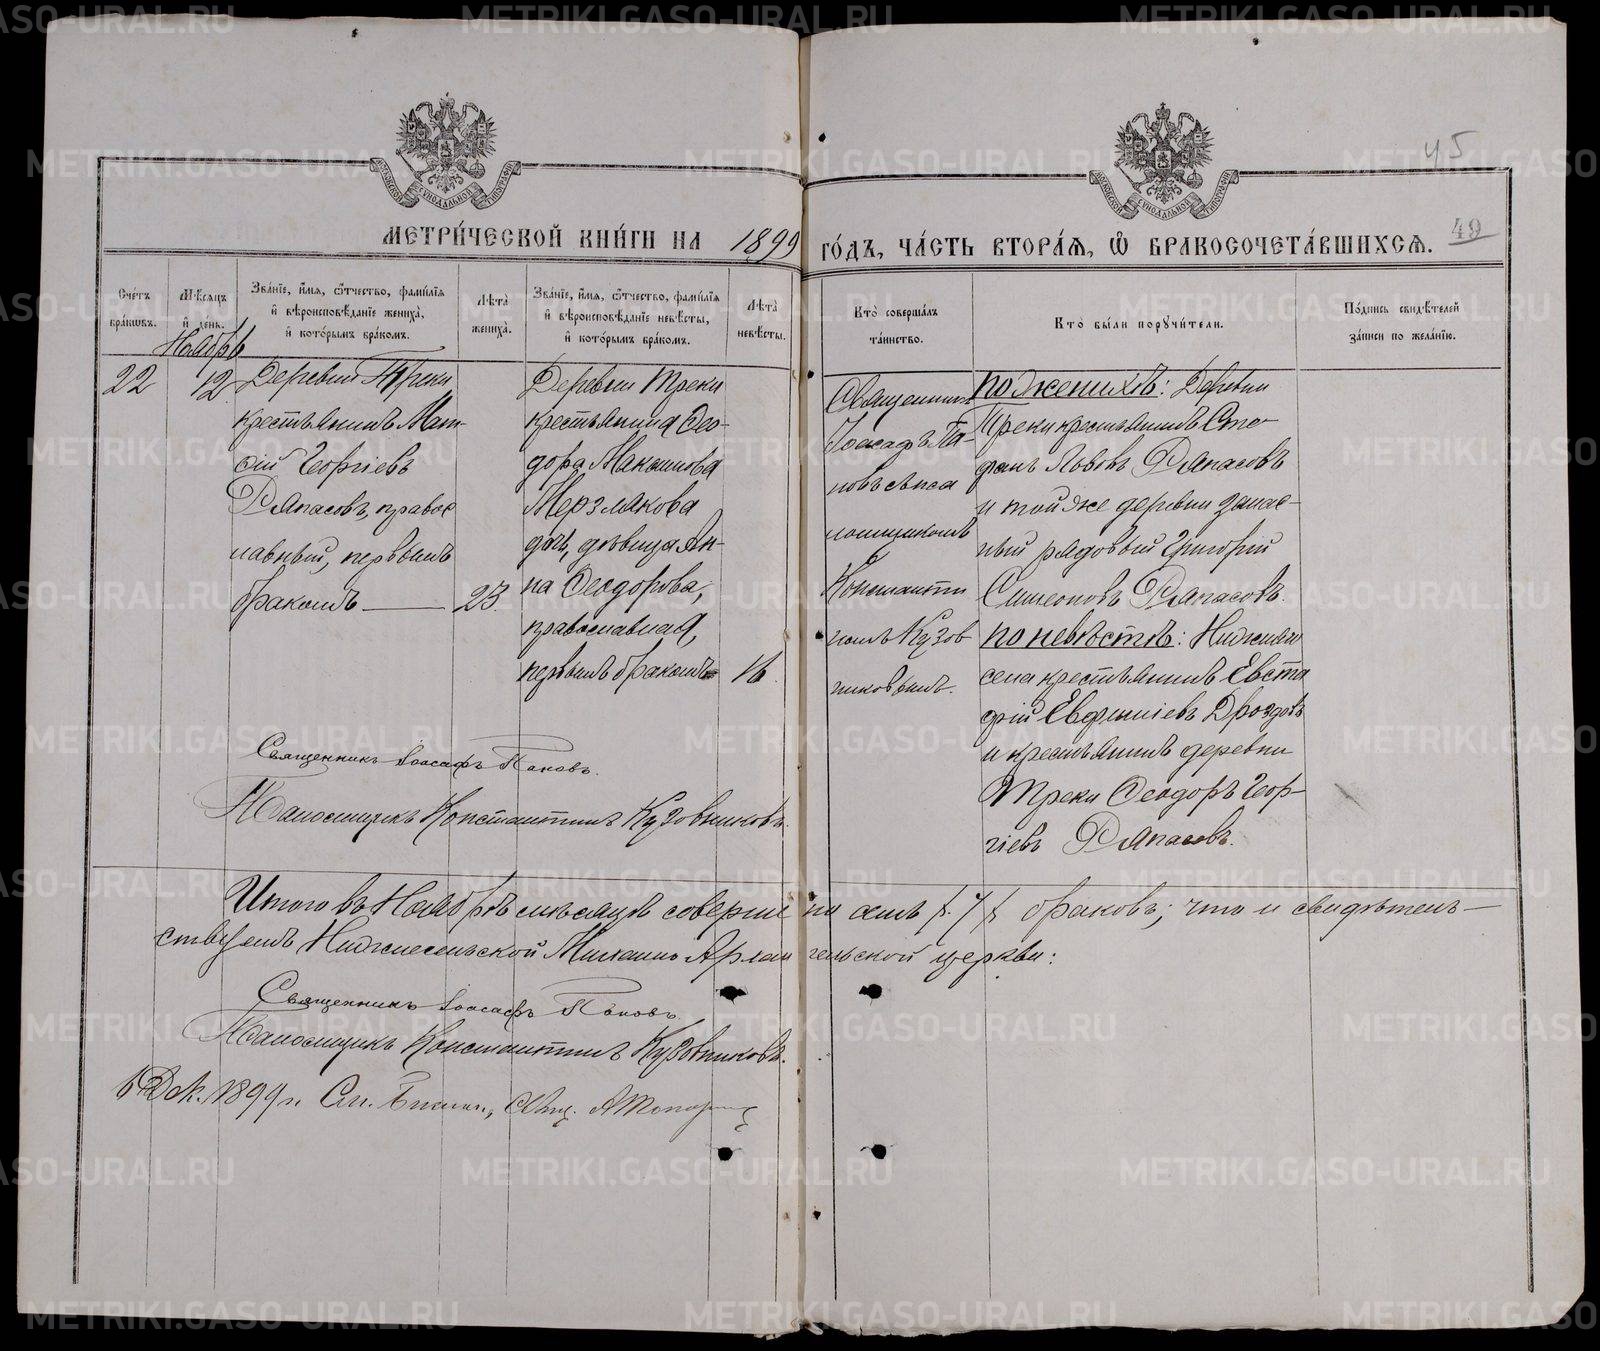 МЕТРИЧЕСКОЙ КНИГИ НА 1899 ГОДЪ, ЧАСТЬ ВТОРАЯ, Ѡ БРАКОСОЧЕТАВШИХСЯ.
45
49
Счетъ браковъ.
Мѣсяцъ и день.
Званіе, имя, ѿчество, фамилія и вѣроисповѣданіе жениха, и которымъ бракомъ.
Лѣта жениха.
Званіе, имя, ѿчество, фамилія и вѣроисповѣданіе невѣсты, и которымъ бракомъ.
Лѣта невѣсты.
Кто совершалъ таинство.
Кто были поручители.
Подпись свидѣтелей записи по желанію.
Ноябрь
22
12
Деревни Треки
крестьянинъ Мат-
сій Георгіевъ
Ряпасовъ, правос
лавный, первымъ
бракомъ
23.
Деревни Треки
крестьянина Ѳео-
дора Максимова
Мерзлякова
дочь, дѣвица Ан-
на Ѳеодорова,
православная,
первымъ бракомъ
16.
Священникъ
Іоасафъ Па-
новъ съ пса
ломщикомъ
Константи
номъ Кузов
никовымъ.
по женихѣ: Деревни
Треки крестьянинъ Сте-
фанъ Львовъ Ряпасовъ
и той же деревни запас-
ный рядовый Григорій
Симеоновъ Ряпасовъ.
по невѣстѣ: Нижняго
села крестьянинъ Евста
фій Евфиміевъ Дроздовъ
и крестьянинъ деревни
Треки Ѳеодоръ Геор-
гіевъ Ряпасовъ.
Священникъ Іоасафъ Пановъ.
Псаломщикъ Константинъ Кузовниковъ.
Итого въ Ноябрѣ мѣсяцѣ совершено семь /. 7 / браковъ; что и свидѣтель-
ствуемъ Нижнесельской Михаило-Архангельской церкви:
Священникъ Іоасафъ Пановъ.
Псаломщикъ Константинъ Кузовниковъ.
6 Дек. 1899 г. См. Благоч., Свящ. А Топорк
METRIKI.GASO-URAL.RU